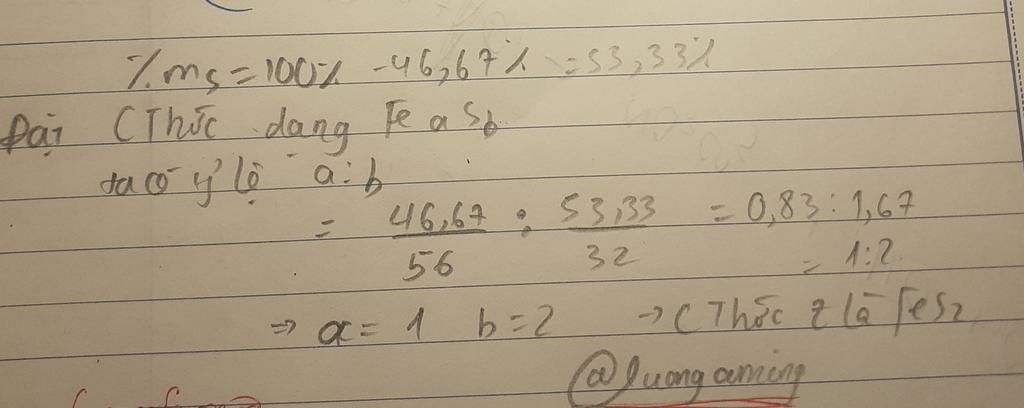 %ms = 100% - 46,67% = 53,33%
Đặt CThức dạng FeaSb
ta có tỷ lệ a:b
= 46,67/56 : 53,33/32 = 0,83 : 1,67
= 1:2
⇒ a = 1 b = 2 → CThức Z là FeS2
@luongaming